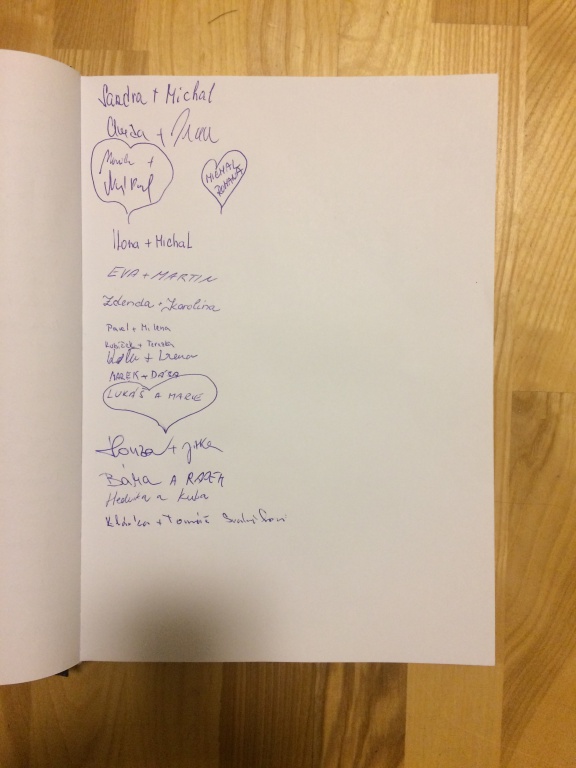 Sandra + Michal
Honza +
+
MICHAL
ROMANA
Ilona + Michal
EVA + MARTIN
Zdenda + Karolína
Pavel + Milena
Kubíček + Terezka
+ Irena
MAREK + DÁŠA
LUKÁŠ A MARIE
Honza + Jitka
BÁRA A RADEK
Hedvika a Kuba
Klárka + Tomáš